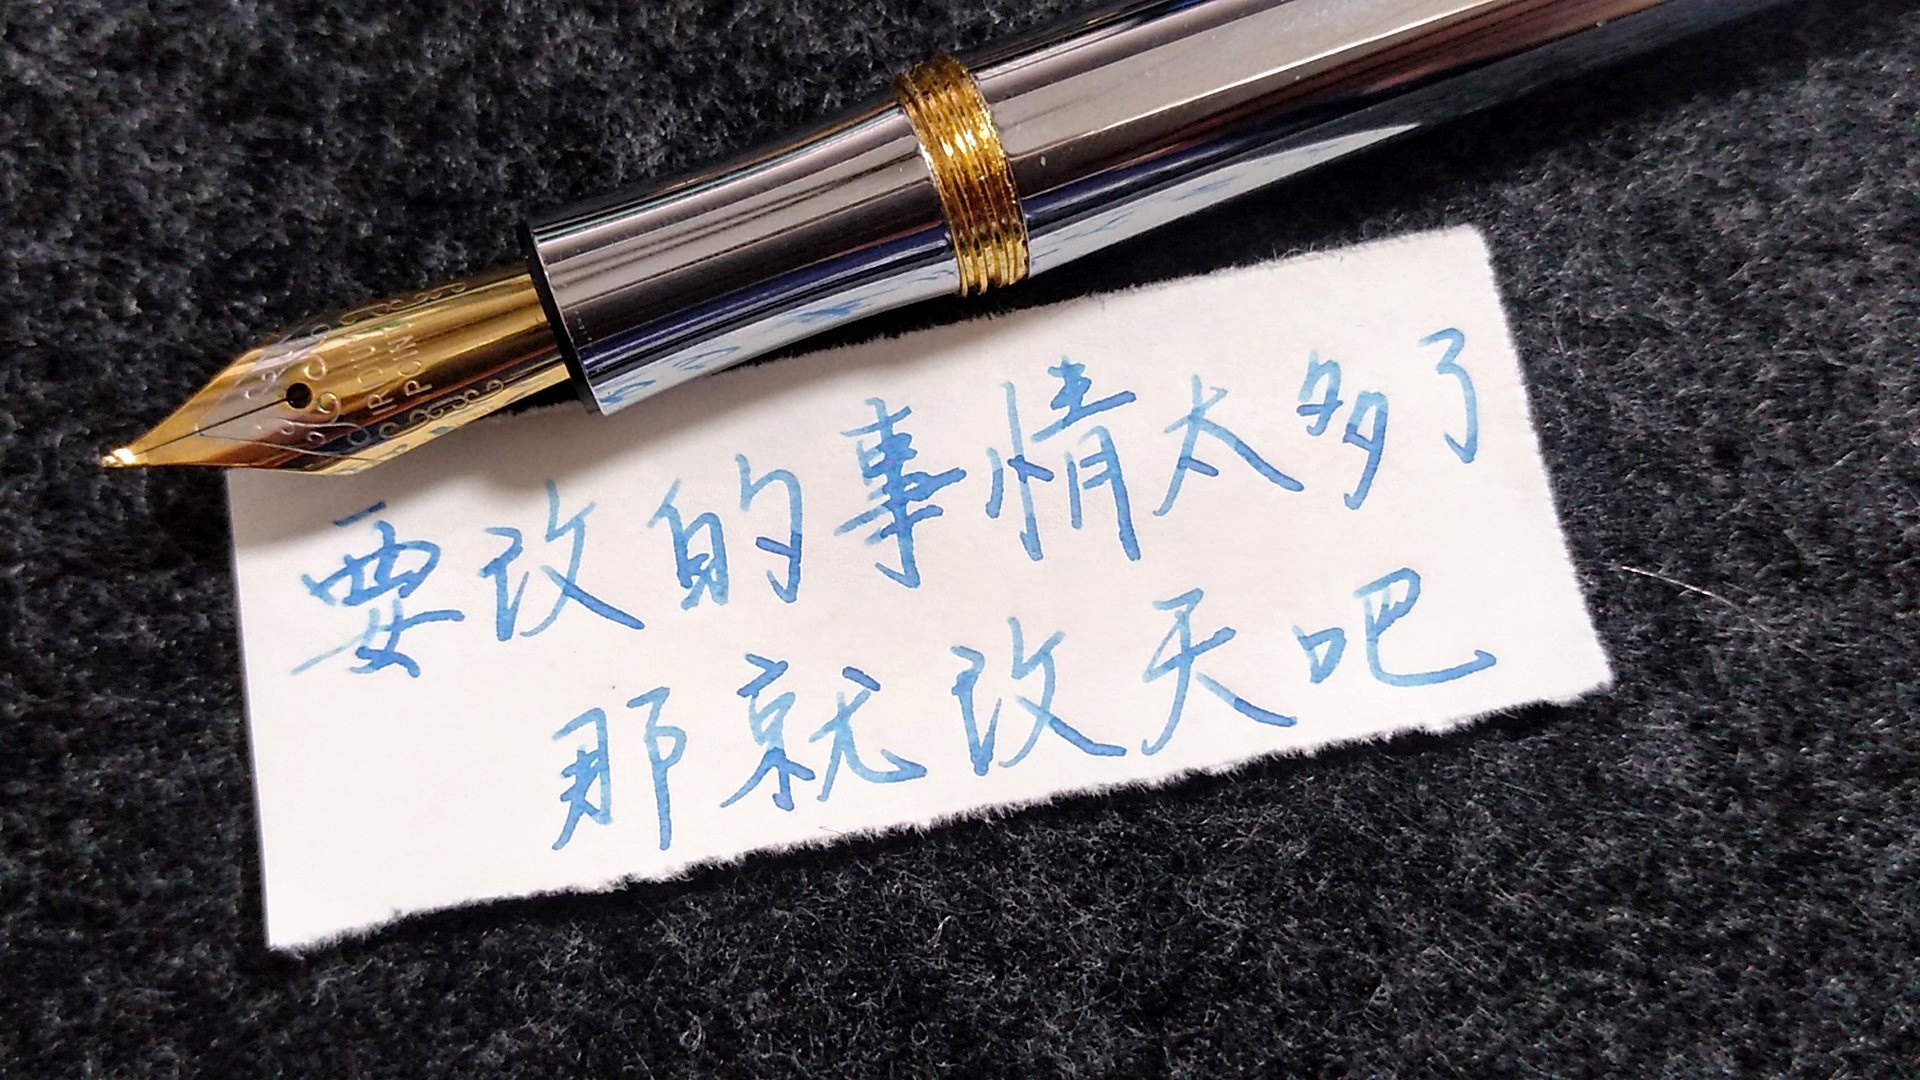 IRIDIUM
POINT
要改的事情太多了
那就改天吧